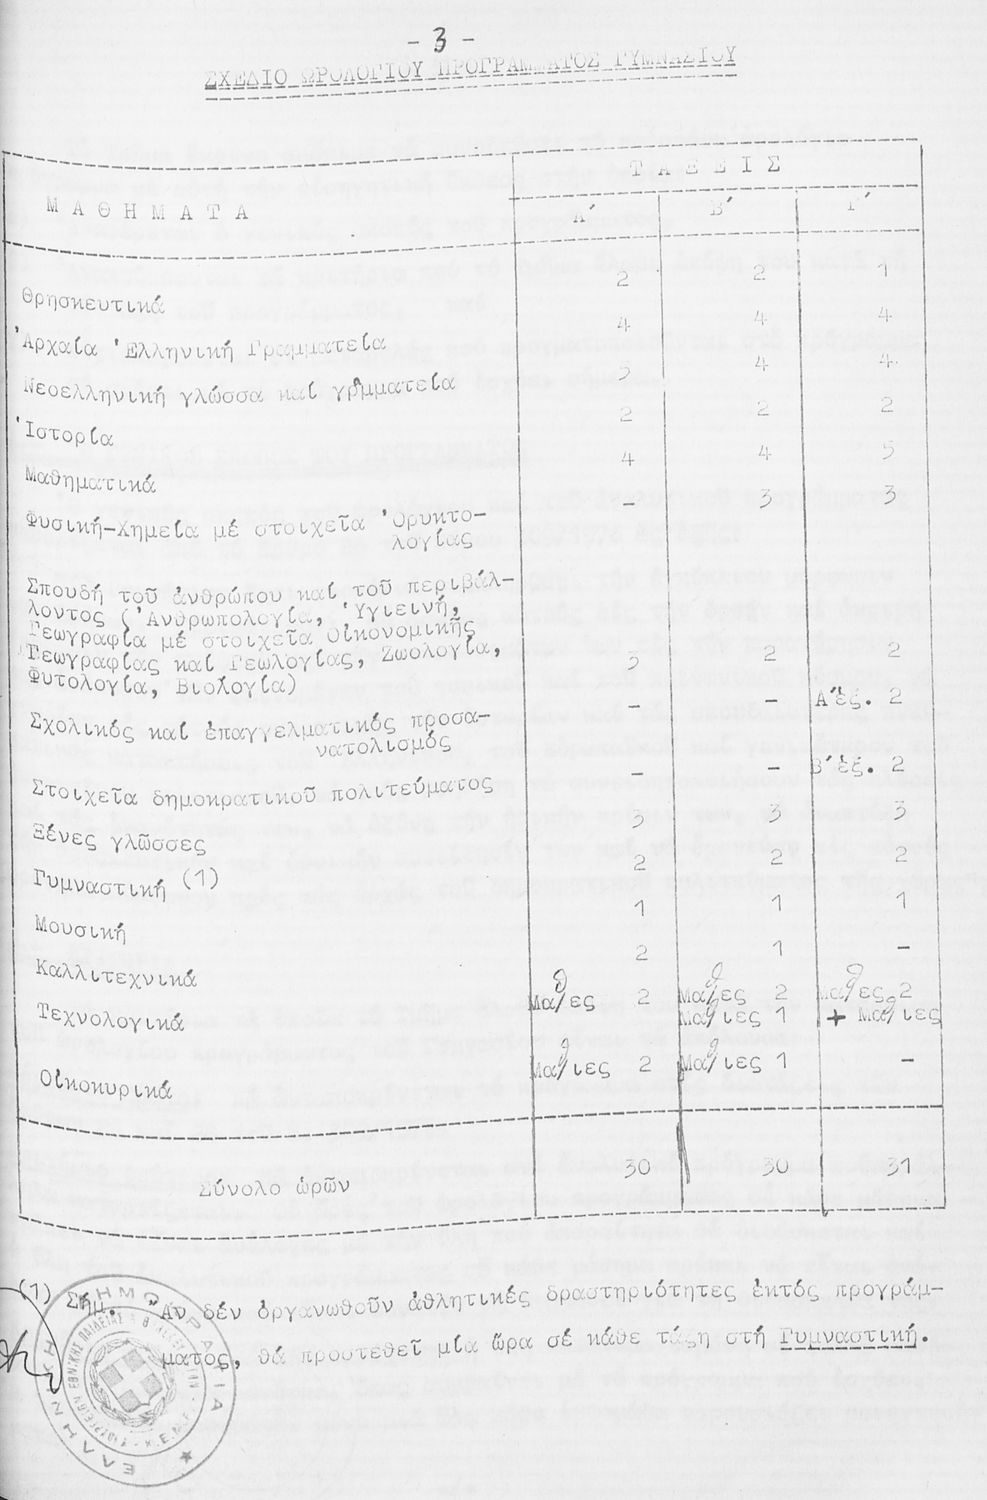 - 3 -
ΣΧΕΔΙΟ ΩΡΟΛΟΓΙΟΥ ΠΡΟΓΡΑΜΜΑΤΟΣ ΓΥΜΝΑΣΙΟΥ
ΜΑΘΗΜΑΤΑ ΤΑΞΕΙΣ
Α΄ Β΄ Γ΄
Θρησκευτικά 2 2 1
Ἀρχαία Ἑλληνική Γραμματεία 4 4 4
Νεοελληνική γλώσσα καί γραμματεία 5 4 4
Ἱστορία 2 2 2
Μαθηματικά 4 4 5
Φυσική-Χημεία μέ στοιχεῖα Ὀρυκτο- - 3 3
λογίας
Σπουδή τοῦ ἀνθρώπου καί τοῦ περιβάλ-
λοντος (Ἀνθρωπολογία, Ὑγιεινή,
Γεωγραφία μέ στοιχεῖα Οἰκονομικῆς
Γεωγραφίας καί Γεωλογίας, Ζωολογία, 3 2 2
Φυτολογία, Βιολογία)
Σχολικός καί ἐπαγγελματικός προσα- - - Α΄ἑξ. 2
νατολισμός
Στοιχεῖα δημοκρατικοῦ πολιτεύματος - - Β΄ἑξ. 2
Ξένες γλῶσσες 3 3 3
Γυμναστική (1) 2 2 2
Μουσική 1 1 1
Καλλιτεχνικά 2 1 -
Τεχνολογικά Μαθ/ες 2 Μαθ/ες 2 Μαθ/ες 2
Μαθ/ιες 1 + Μαθ/ιες
Οἰκοκυρικά Μαθ/ιες 2 Μαθ/ιες 1 -
Σύνολο ὡρῶν 30 30 31
(1) Σημ. Ἄν δέν ὀργανωθοῦν ἀθλητικές δραστηριότητες ἐκτός προγράμ-
ματος, θά προστεθεῖ μία ὥρα σέ κάθε τάξη στή Γυμναστική.
ΕΛΛΗΝΙΚΗ ΔΗΜΟΚΡΑΤΙΑ